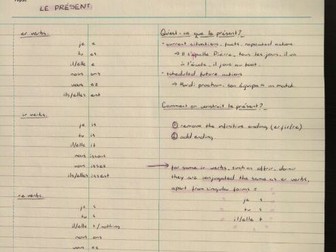 LE PRÉSENT
er verbs
je e
tu es
il/elle e
nous ons
vous ez
ils/elles ent
ir verbs
je is
tu is
il/elle it
nous issons
vous issez
ils/elles issent
re verbs
je s
tu s
il/elle - / nothing
nous ons
vous ez
Qu'est-ce que le présent?
- current situations, facts, repeated actions
- scheduled future actions
Comment on construit le présent?
① remove the infinitive ending (er/ir/re)
② add ending
for some ir verbs, such as offrir,
they are conjugated the same as er verbs,
apart from singular forms:
je s
tu s
il/elle t